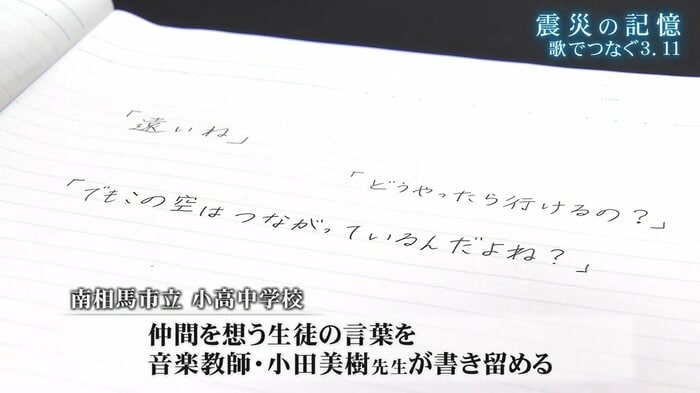 震災の記憶
歌でつなぐ3.11
「遠いね」
「どうやったら行けるの？」
「でもこの空はつながっているんだよね？」
南相馬市立 小高中学校
仲間を想う生徒の言葉を
音楽教師・小田美樹先生が書き留める